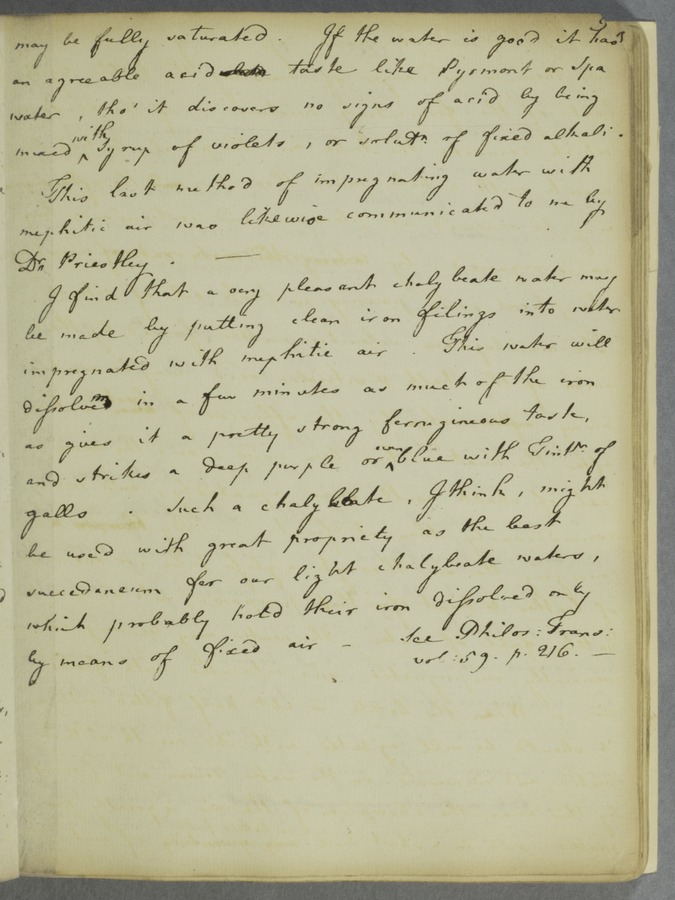 may be fully saturated. If the water is good it has
an agreeable acid taste like Pyrmont or Spa
water, tho' it discovers no signs of acid by being
mixed with Syrup of violets, or solutn. of fixed alkali.
This last method of impregnating water with
mephitic air was likewise communicated to me by
Dr. Priestley. —
I find that a very pleasant chalybeate water may
be made by putting clean iron filings into water
impregnated with mephitic air. This water will
dissolve in a few minutes as much of the iron
as gives it a pretty strong ferrugineous taste,
and strikes a deep purple or even blue with Tinctr. of
galls. Such a chalybeate, I think, might
be used with great propriety as the best
succedaneum for our light chalybeate waters,
which probably hold their iron dissolved only
by means of fixed air —
See Philos: Trans:
vol: 59. p. 216. —